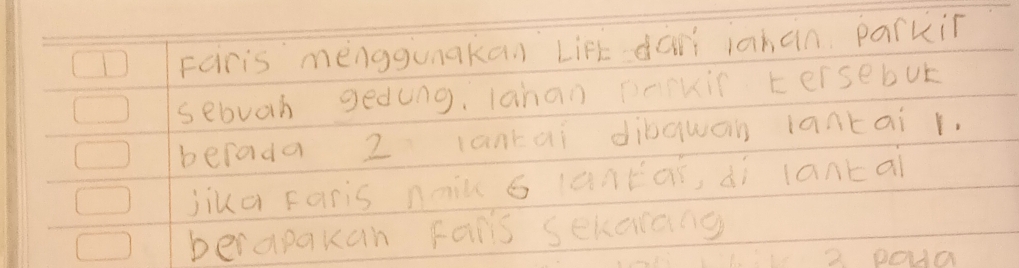 1 Faris menggunakan Lift dari lahan parkir
sebuah gedung. lahan parkir tersebut
berada 2 lantai dibawah lantai 1.
jika Faris naik 6 lantai, di lantai
berapakah Faris sekarang
2 pada